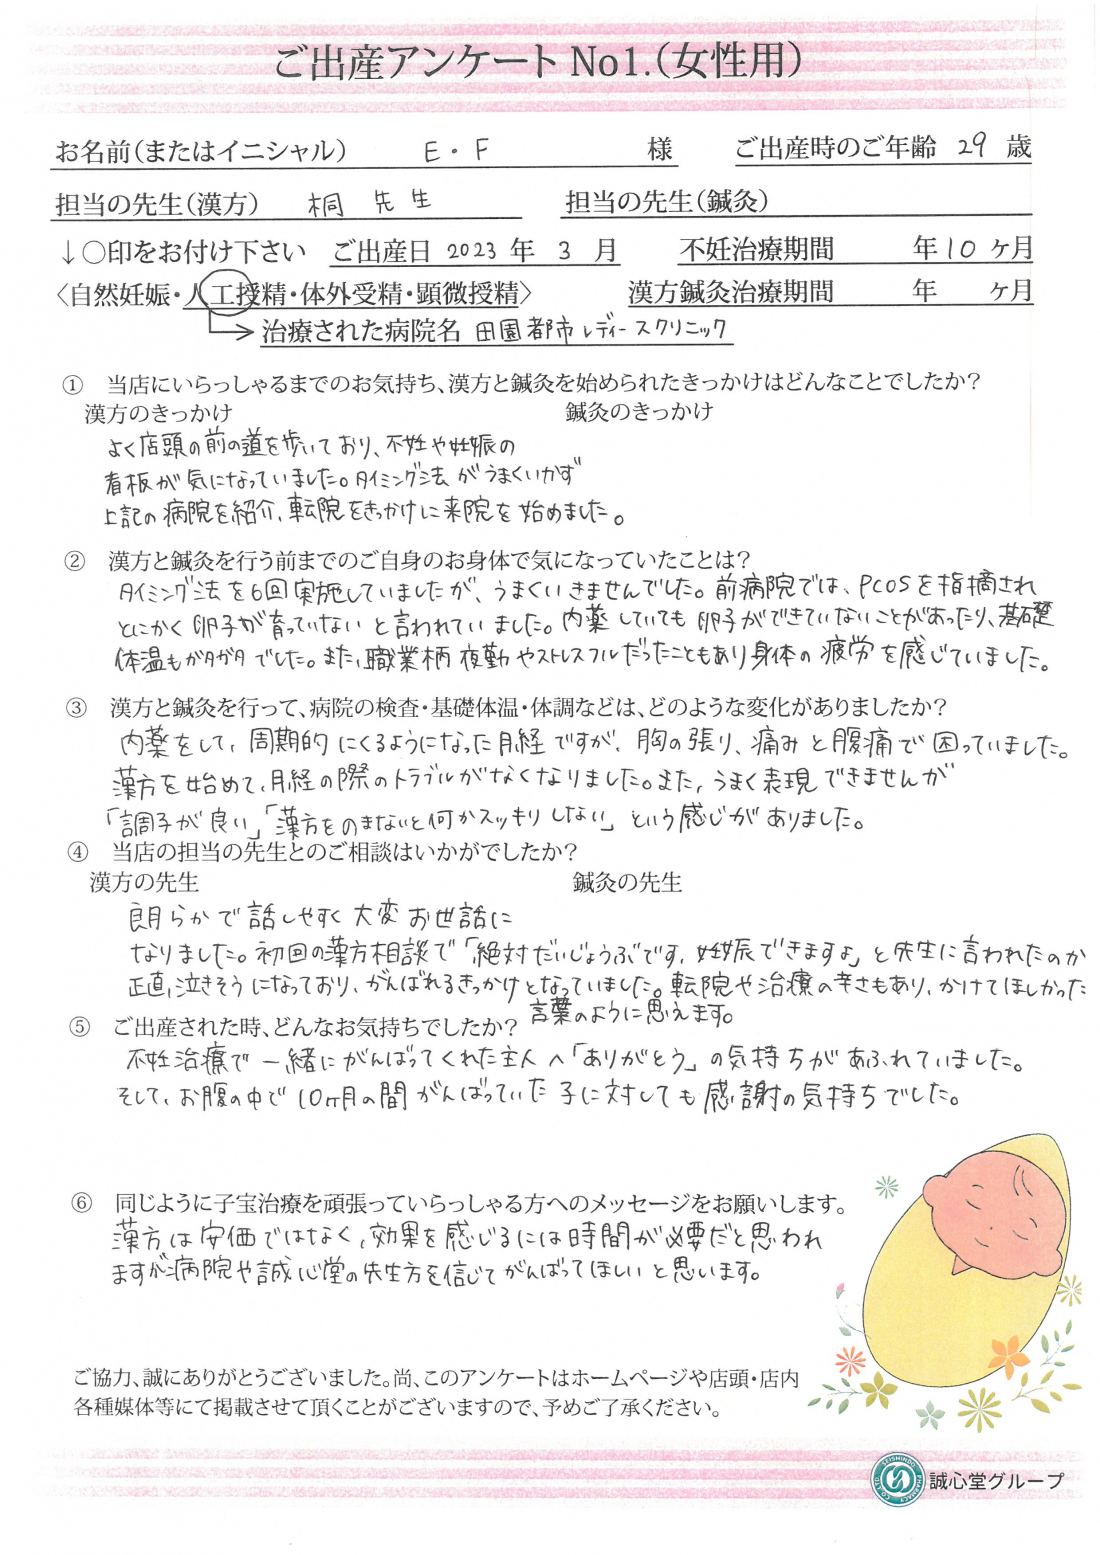 ご出産アンケート No1.(女性用)
お名前(またはイニシャル) E・F 様 ご出産時のご年齢 29 歳
担当の先生(漢方) 桐 先生 担当の先生(鍼灸)
↓○印をお付け下さい ご出産日 2023 年 3 月 不妊治療期間 年 10 ヶ月
〈自然妊娠・人工授精・体外受精・顕微授精〉 漢方鍼灸治療期間 年 ヶ月
治療された病院名 田園都市レディースクリニック
① 当店にいらっしゃるまでのお気持ち、漢方と鍼灸を始められたきっかけはどんなことでしたか?
漢方のきっかけ 鍼灸のきっかけ
よく店頭の前の道を歩いており、不妊や妊娠の
看板が気になっていました。タイミング法がうまくいかず
上記の病院を紹介、転院をきっかけに来院を始めました。
② 漢方と鍼灸を行う前までのご自身のお身体で気になっていたことは?
タイミング法を6回実施していましたが、うまくいきませんでした。前病院では、PCOSを指摘され
とにかく卵子が育っていないと言われていました。内薬していても卵子ができていないことがあったり、基礎
体温もガタガタでした。また、職業柄夜勤やストレスフルだったこともあり身体の疲労を感じていました。
③ 漢方と鍼灸を行って、病院の検査・基礎体温・体調などは、どのような変化がありましたか?
内薬をして、周期的にくるようになった月経ですが、胸の張り、痛みと腹痛で困っていました。
漢方を始めて、月経の際のトラブルがなくなりました。また、うまく表現できませんが
「調子が良い」「漢方をのまないと何かスッキリしない」という感じがありました。
④ 当店の担当の先生とのご相談はいかがでしたか?
漢方の先生 鍼灸の先生
朗らかで話しやすく大変お世話に
なりました。初回の漢方相談で「絶対だいじょうぶです、妊娠できますよ」と先生に言われたのが
正直泣きそうになっており、がんばれるきっかけとなっていました。転院や治療の辛さもあり、かけてほしかった
言葉のように思えます。
⑤ ご出産された時、どんなお気持ちでしたか?
不妊治療で一緒にがんばってくれた主人へ「ありがとう」の気持ちがあふれていました。
そして、お腹の中で10ヶ月の間がんばっていた子に対しても感謝の気持ちでした。
⑥ 同じように子宝治療を頑張っていらっしゃる方へのメッセージをお願いします。
漢方は安価ではなく、効果を感じるには時間が必要だと思われ
ますが病院や誠心堂の先生方を信じてがんばってほしいと思います。
ご協力、誠にありがとうございました。尚、このアンケートはホームページや店頭・店内
各種媒体等にて掲載させて頂くことがございますので、予めご了承ください。
誠心堂グループ